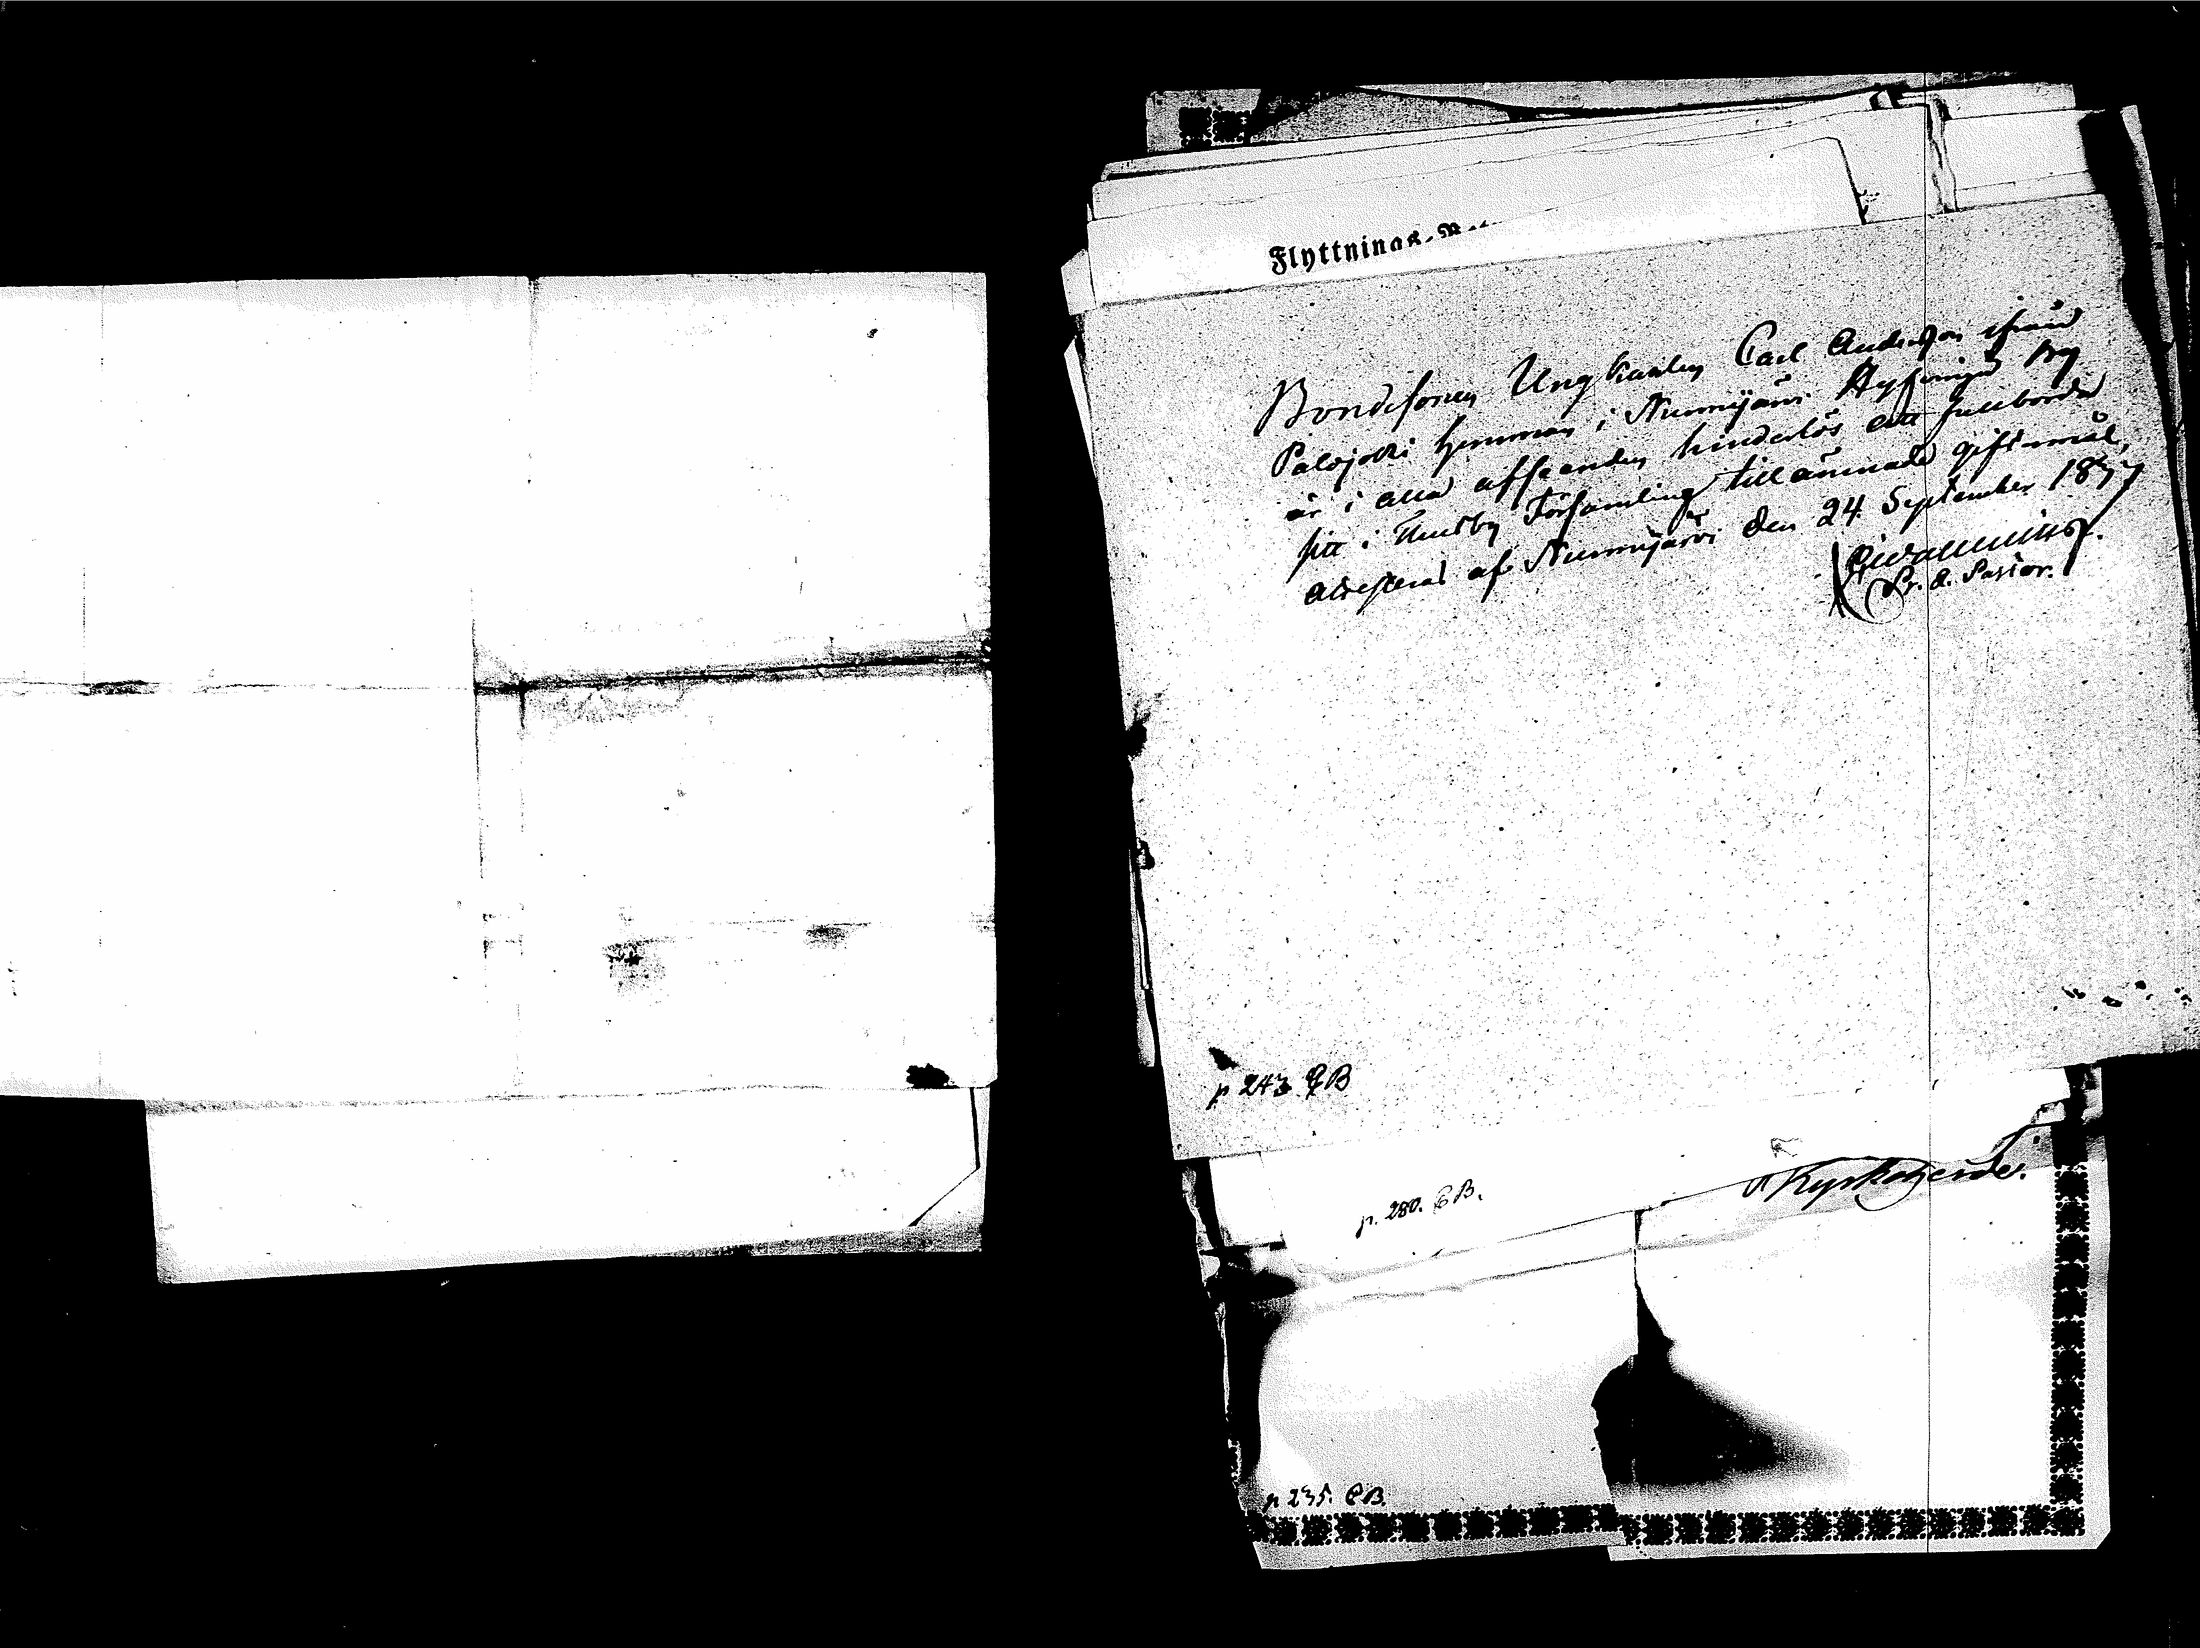 Flyttnings-
Bondesonen Ungkarlen Carl Andersson ifrån
Palojoki hemman i Nurmijärvi Hyfvinge by
är i alla afseenden hinderlös att fullborda
sitt i Thusby Församling tillämnade giftermål,
attesteras af Nurmijärvi den 24 September 1877
Pr. o. Pastor.
p 243 CB
p. 280. CB.
Kyrkoherde.
p 235. CB.